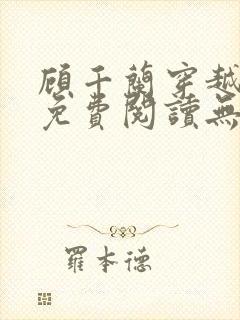 顾千蘭穿越
免費閱讀無
羅本德